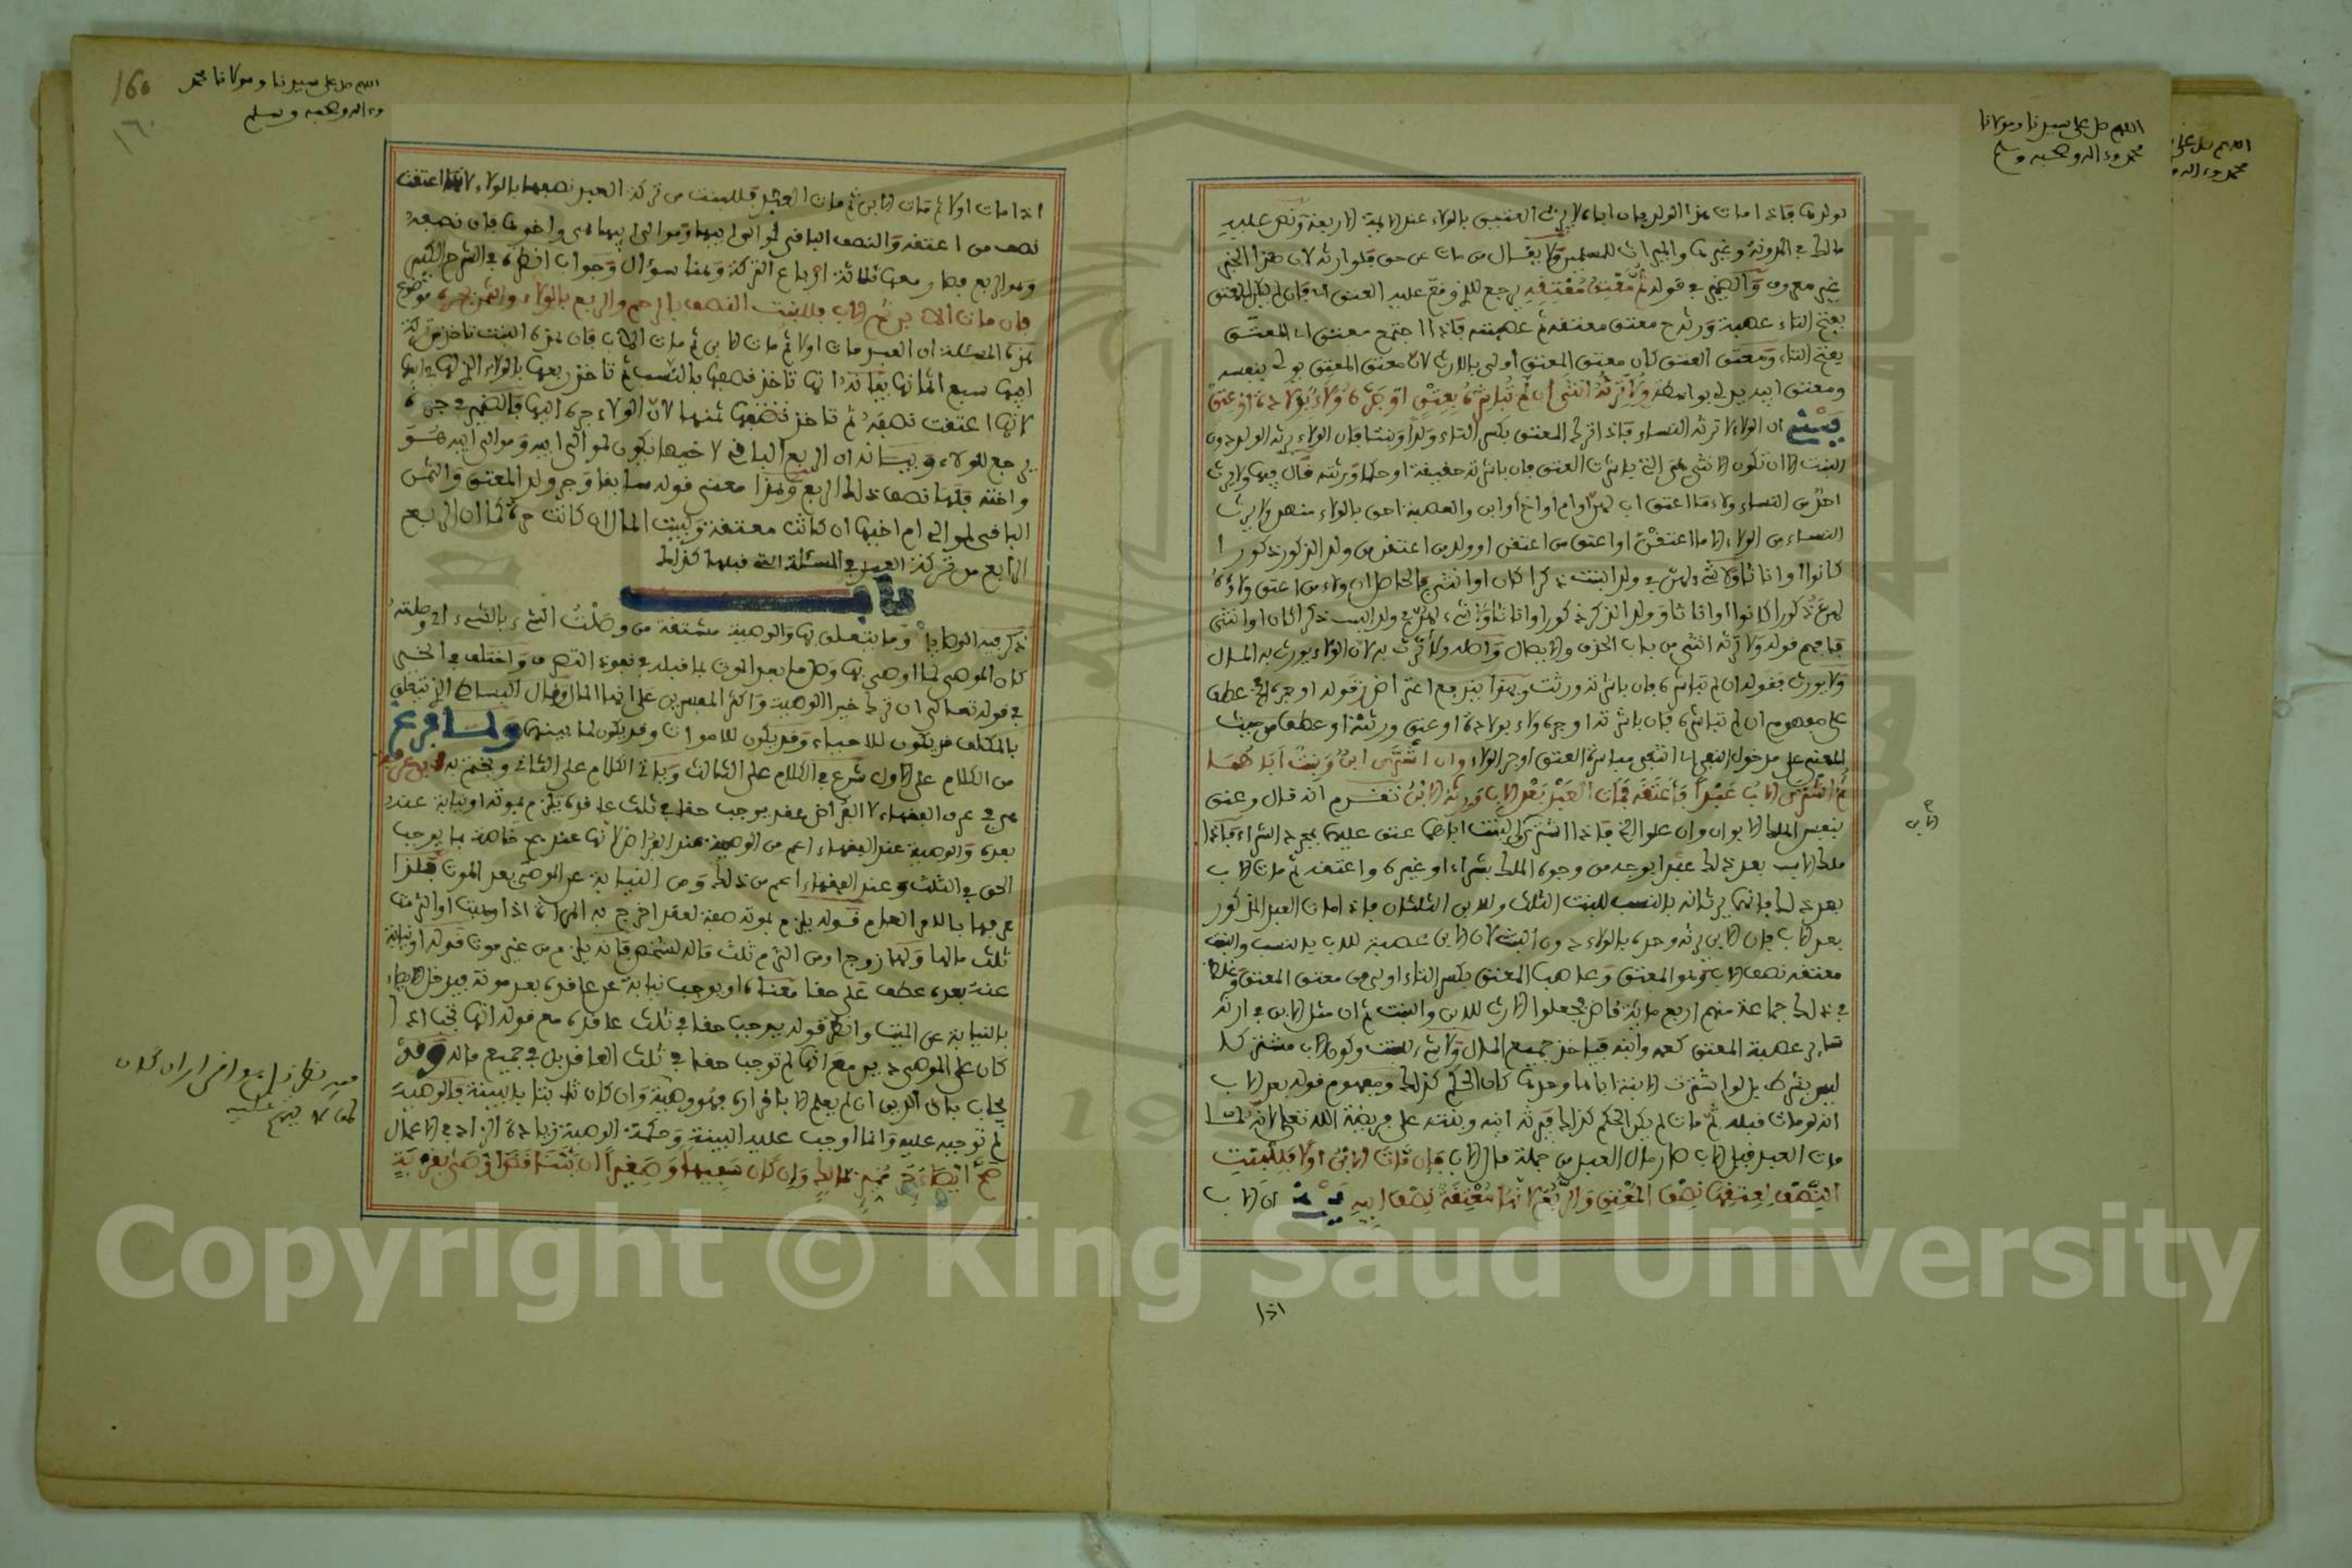 اللهم صل على سيدنا ومولانا
محمد وءاله وصحبه وسلم
لولدها فاذا مات هذا الولد فان اباه لا يرث العتيق بالولاء عند الايمة الاربعة ونص عليه
مالك في المدونة وغيرها والميراث للمسلمين ولا يقال من مات عن حق فلوارثه لان هذا الحق
غير معروف والضمير في قوله ثم معتق معتقه يرجع للذي وقع عليه العتق اي فان لم يكن للمعتق
بفتح التاء عصبة ورثه معتق معتقه ثم عصبته فاذا اجتمع معتق اب المعتق
بفتح التاء ومعتق المعتق كان معتق المعتق اولى بالارث لان معتق المعتق يدلي بنفسه
ومعتق ابيه يدلي بواسطة ولا ترثه انثى ان لم تباشره بعتق او جره ولاء بولادة او عتق
ش ان الولاء لا ترثه النساء فاذا ترك المعتق بكسر التاء ولدا وبنتا فان الولاء يرثه الولد دون
البنت الا ان تكون الانثى هي التي باشرت العتق فان باشرته حقيقة او حكما ورثته قال فيها ولا يرث
احد من النساء ولاء ما اعتق اب لهن او ام او اخ او ابن والعصبة احق بالولاء منهن ولا يرث
النساء من الولاء الا ما اعتقن او اعتق من اعتقن او ولد من اعتقن من ولد الذكور ذكورا
كانوا او اناثا ولا شيء لهن في ولد البنت ذكرا كان او انثى فالحاصل ان ولاء من اعتق ولاؤه
لهن ذكورا كانوا او اناثا وولد الذكر ذكورا او اناثا ولا شيء لهن في ولد البنت ذكرا كان او انثى
فافهم قوله ولا ترثه انثى من باب الحذف والايصال واصله ولا ترث به لان الولاء يورث به المال
ولا يورث فقوله ان لم تباشره فان باشرته ورثت وبهذا يندفع اعتراض ز قوله او جره الخ عطف
على مفهوم ان لم تباشره فان باشرته او جره ولاء بولادة او عتق ورثته او عطف من حيث
المعنى على مدخول النفي اي انتفى مباشرة العتق او جر الولاء وان اشترى ابن وبنت اباهما
ثم اشترى الاب عبدا فاعتقه فمات العبد بعد الاب ورثه الابن تقدم انه قال وعتق
بنفس الملك الابوان وان علوا الخ فاذا اشترى ابن وبنت اباهما عتق عليهما بمجرد الشراء فاذا
ملك الاب بعد ذلك عبدا بوجه من وجوه الملك بشراء او غيره واعتقه ثم مات الاب
بعد ذلك فانهما يرثانه بالنسب للبنت الثلث وللابن الثلثان فاذا مات العبد المذكور
بعد الاب فان الابن يرثه وحده بالولاء دون البنت لان الابن عصبة للاب بالنسب والبنت
معتقة نصف الاب وهو المعتق وعاصب المعتق بكسر التاء اولى من معتق المعتق وغلط
في ذلك جماعة منهم اربع ماية قاض فجعلوا الارث للابن والبنت ثم ان مثل الابن في ارثه
سائر عصبة المعتق كعمه وابنه فياخذ جميع المال ولا شيء للبنت وكون الاب مشتركا
ليس بشرط بل لو اشترت الابنة اباها وحدها كان الحكم كذلك ومفهوم قوله بعد الاب
انه لو مات قبله ثم مات لم يكن الحكم كذلك فيرثه ابنه وبنته على فريضة الله تعالى لانه لما
مات العبد قبل الاب صار مال العبد من جملة مال الاب وان مات الابن اولا فللبنت
النصف لعتقها نصف المعتق والربع لانها معتقة نصف ابيه ش ان الاب
الاب
اذا
160
١٦٠
اللهم صل على سيدنا ومولانا محمد
وءاله وصحبه وسلم
اذا مات اولا ثم مات الابن ثم مات العبد فللبنت من تركة العبد نصفها بالولاء لانها اعتقت
نصف من اعتقه والنصف الباقي لموالي ابيها وموالي ابيها هي واخوها فان نصفه
وهو الربع فصار معها ثلاثة ارباع التركة وهنا سؤال وجواب انظره في الشرح الكبير
فان مات الابن ثم الاب فللبنت النصف بالرحم والربع بالولاء والثمن بجره موضوع
هذه المسئلة ان العبد مات اولا ثم مات الابن ثم مات الاب فان هذه البنت تاخذ من تركة
ابيها سبع اثمانها بيانه انها تاخذ نصفها بالنسب ثم تاخذ ربعها بالولاء الذي لها في ابيها
لانها اعتقت نصفه ثم تاخذ نصفها ثمنها لان الولاء جره اليها فالضمير في جره
يرجع للولاء وبيانه ان الربع الباقي لاخيها يكون لموالي ابيه وموالي ابيه هو
واخته فلها نصف ذلك الربع وهذا معنى قوله سابقا وجر ولد المعتق والثمن
الباقي لموالي ام اخيها ان كانت معتقة وبيت المال ان كانت حرة كما ان الربع
الرابع من تركة العبد في المسئلة التي قبلها كذلك
باب
ذكر فيه الوصايا وما يتعلق بها والوصية مشتقة من وصلت الشيء بالشيء اذا وصلته
كان الموصي لما اوصى بها وصل ما بعد الموت بما قبله في نفوذ التصرف واختلف في الخير
في قوله تعالى ان ترك خيرا الوصية واكثر المفسرين على انه المال وقال البساطي الذي يتعلق
بالمكلف قد يكون للاحياء وقد يكون للاموات وقد يكون لما بينهما ولما فرغ
من الكلام على الاول شرع في الكلام على الثالث وياتي الكلام على الثاني ويختم به ابن عرفة
هي في عرف الفقهاء لا الفراض عقد يوجب حقا في ثلث عاقده يلزم بموته او نيابة عنه
بعده والوصية عند الفقهاء اعم من الوصية عند الفراض لانها عندهم خاصة بما يوجب
الحق في الثلث وعند الفقهاء اعم من ذلك ومن النيابة عن الموصي بعد الموت فلذا
عرفها بالامر العام قوله يلزم بموته صفة لعقد اخرج به المراة اذا وهبت او التزمت
ثلث مالها ولها زوج او من التزم ثلث ماله لشخص فانه يلزم من غير موت قوله او نيابة
عنه بعده عطف على حقا معناه او يوجب نيابة عن عاقده بعد موته فيدخل الايصاء
بالنيابة عن الميت وانظر قوله يوجب حقا في ثلث عاقده مع قوله انها تجب اذا
كان على الموصي دين مع انها لم توجب حقا في ثلث العاقد بل في جميع ماله وقد
يجاب بان الدين ان لم يعلم الا باقراره فهو وصية وان كان ثابتا بالبينة فالوصية
لم توجبه عليه وانما اوجب عليه البينة وحكمة الوصية زيادة الزاد في الاعمال
صح ايصاء حر مميز مالك وان كان سفيها وصغيرا ان لم يتناقض قوله او اوصى بقربة